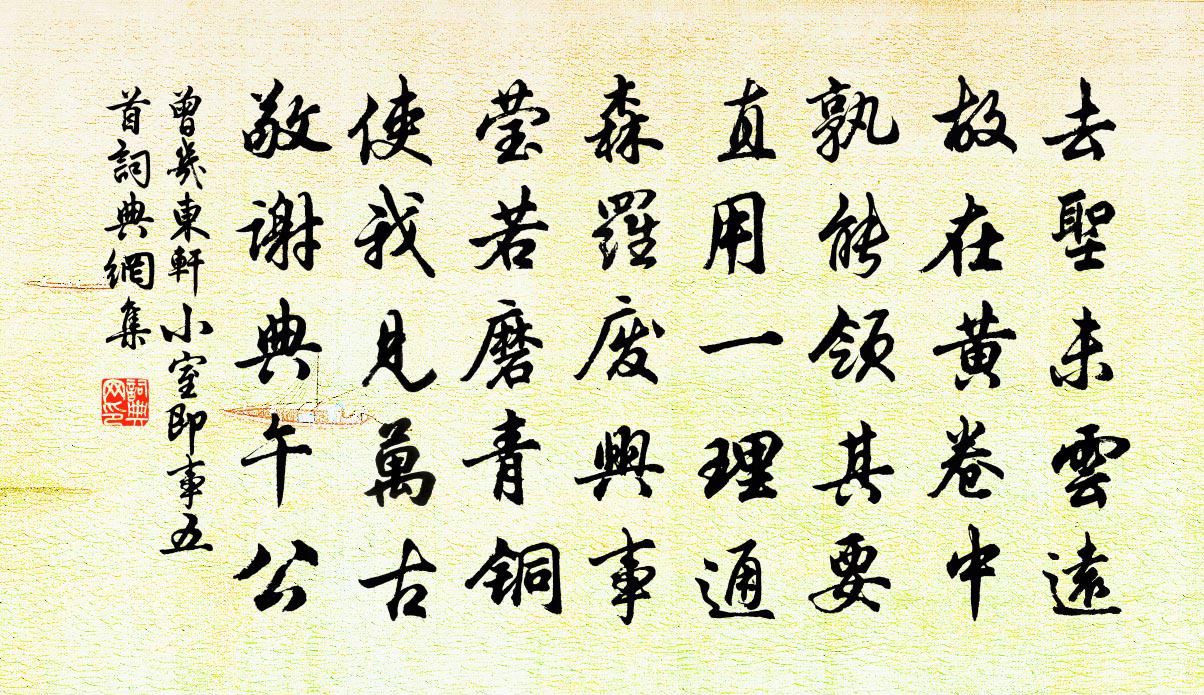 去聖未雲遠
故在黄卷中
孰能領其要
直用一理通
森羅废興事
莹若磨青铜
使我見萬古
敬謝典午公
曾幾東軒小室即事五
首詞典網集
詞典
网印